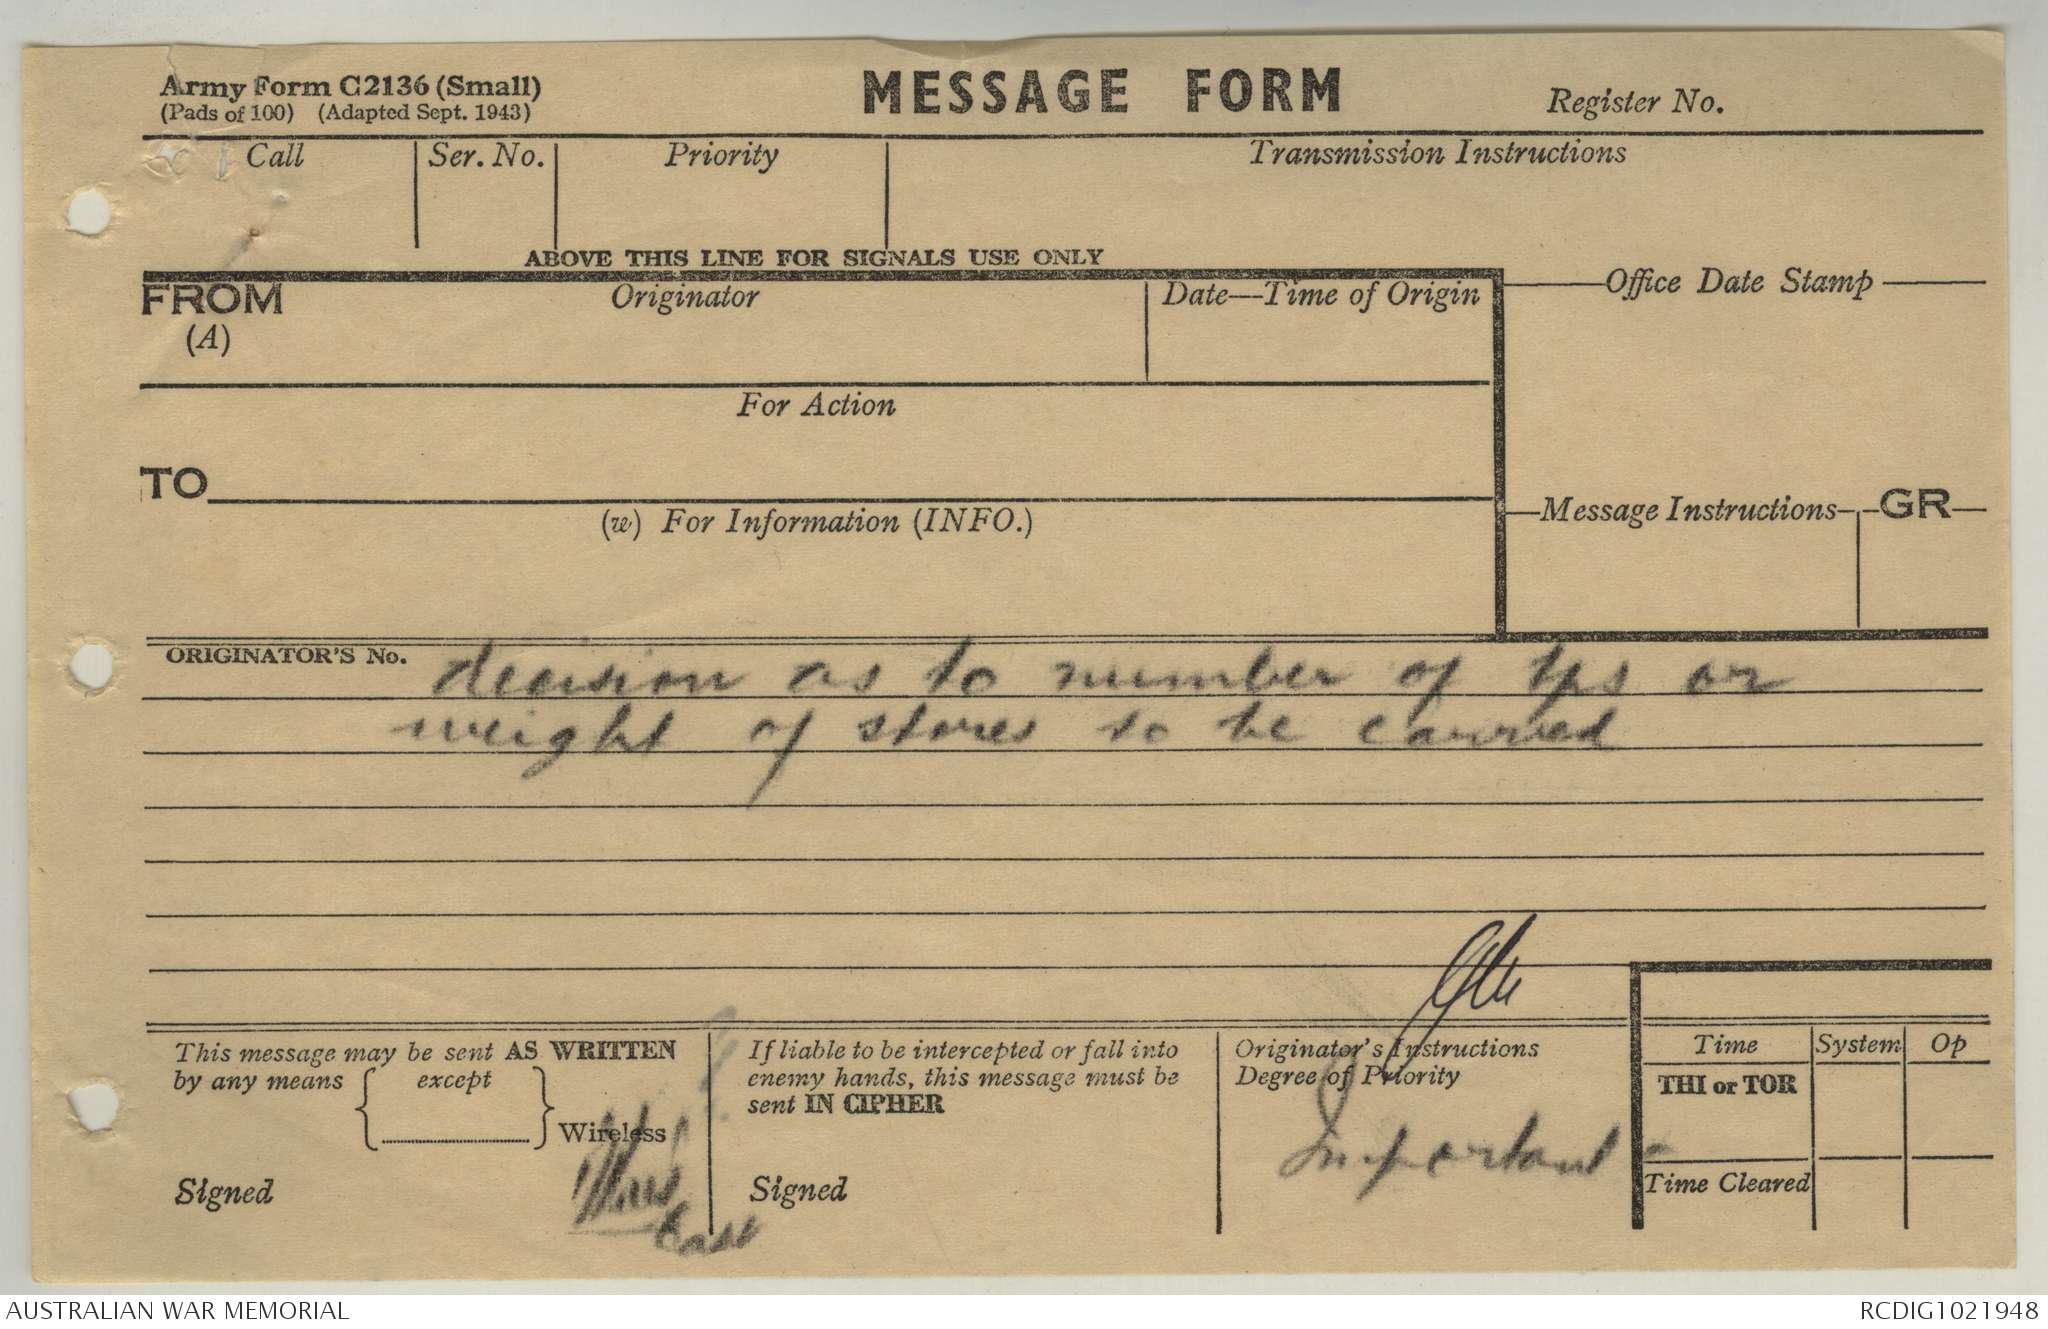 Army Form C2136 (Small)
(Pads of 100) (Adapted Sept. 1943)
MESSAGE FORM
Register No.
Call
Ser. No.
Priority
Transmission Instructions
ABOVE THIS LINE FOR SIGNALS USE ONLY
FROM
(A)
Originator
Date—Time of Origin
Office Date Stamp
For Action
TO
(w) For Information (INFO.)
Message Instructions
GR
ORIGINATOR'S No.
decision as to number of tps or
weight of stores to be carried
This message may be sent AS WRITTEN
by any means { except } Wireless
Signed
If liable to be intercepted or fall into
enemy hands, this message must be
sent IN CIPHER
Signed
Originator's Instructions
Degree of Priority
Important
Time
System
Op
THI or TOR
Time Cleared
AUSTRALIAN WAR MEMORIAL
RCDIG1021948